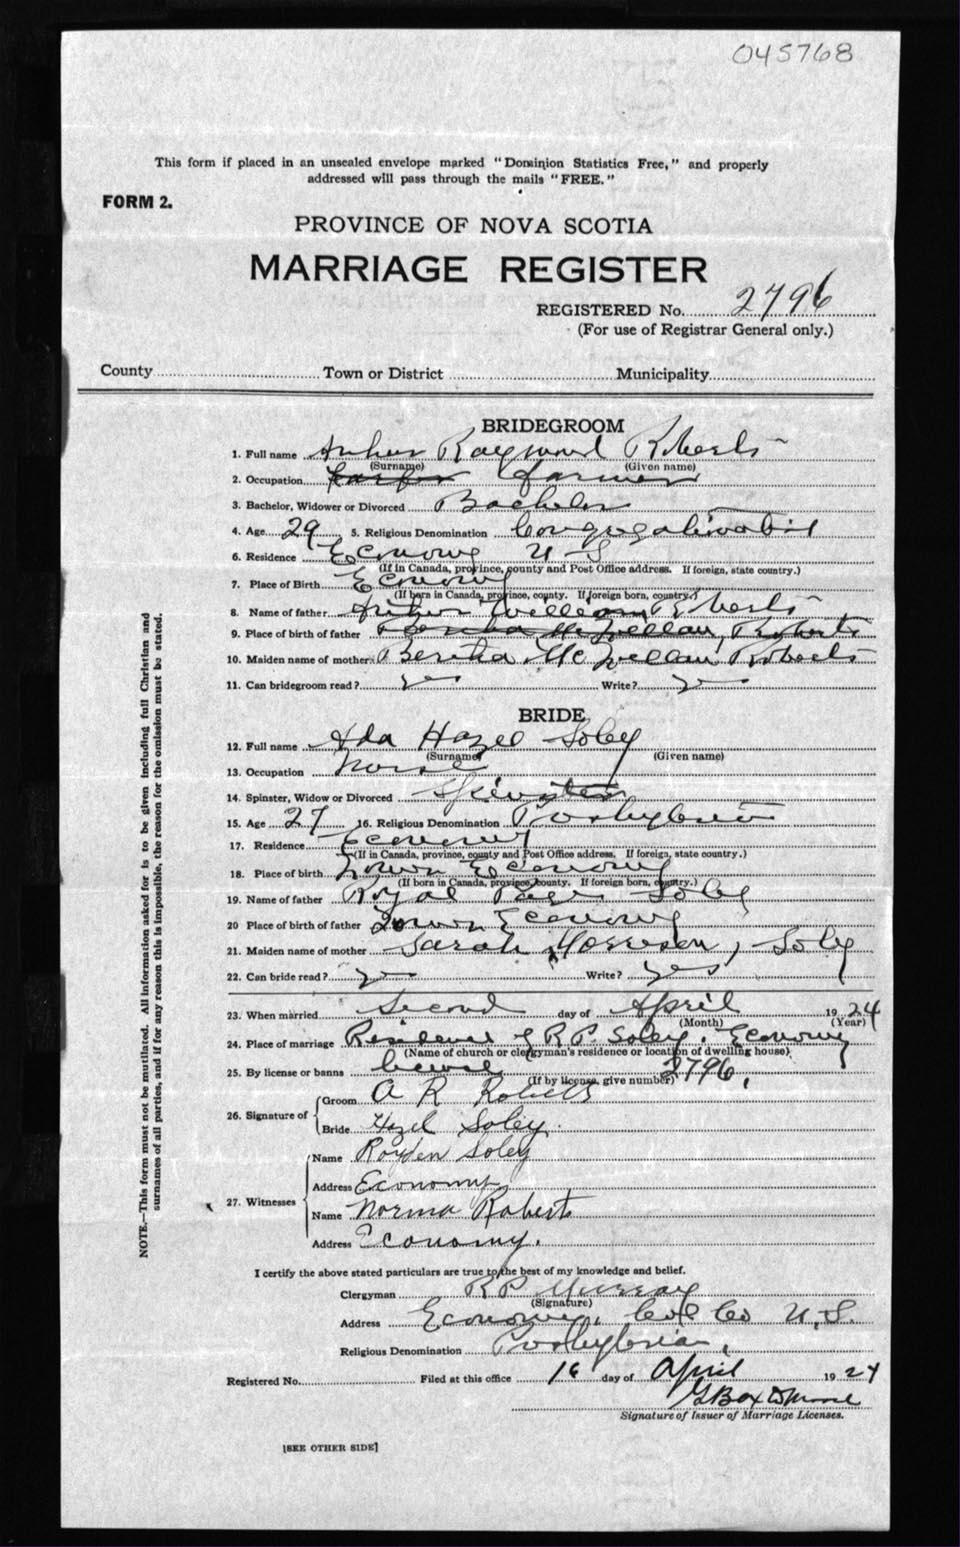 045768
This form if placed in an unsealed envelope marked "Dominion Statistics Free," and properly
addressed will pass through the mails "FREE."
FORM 2.
PROVINCE OF NOVA SCOTIA
MARRIAGE REGISTER
REGISTERED No. 2796
(For use of Registrar General only.)
County Town or District Municipality
BRIDEGROOM
1. Full name Arthur Raymond Roberts
(Surname) (Given name)
2. Occupation farmer
3. Bachelor, Widower or Divorced Bachelor
4. Age 29 5. Religious Denomination Congregationalist
6. Residence Economy N S
(If in Canada, province, county and Post Office address. If foreign, state country.)
7. Place of Birth Economy
(If born in Canada, province, county. If foreign born, country.)
8. Name of father Arthur William Roberts
9. Place of birth of father Roberts
10. Maiden name of mother Bertha Roberts
11. Can bridegroom read? yes Write? yes
BRIDE
12. Full name Ada Hazel Soley
(Surname) (Given name)
13. Occupation nurse
14. Spinster, Widow or Divorced Spinster
15. Age 27 16. Religious Denomination Presbyterian
17. Residence Economy
(If in Canada, province, county and Post Office address. If foreign, state country.)
18. Place of birth Lower Economy
(If born in Canada, province, county. If foreign born, country.)
19. Name of father Royal Soley
20 Place of birth of father Lower Economy
21. Maiden name of mother Sarah Morrison, Soley
22. Can bride read? yes Write? yes
23. When married Second day of April 1924
(Month) (Year)
24. Place of marriage Residence of R P Soley, Economy
(Name of church or clergyman's residence or location of dwelling house)
25. By license or banns license 2796,
(If by license, give number)
26. Signature of
Groom A R Roberts
Bride Hazel Soley.
27. Witnesses
Name Royden Soley
Address Economy
Name Norma Roberts
Address Economy.
I certify the above stated particulars are true to the best of my knowledge and belief.
Clergyman R P Murray
(Signature)
Address Economy, Col Co N.S.
Religious Denomination Presbyterian
Registered No. Filed at this office 16 day of April 1924
Signature of Issuer of Marriage Licenses.
[SEE OTHER SIDE]
NOTE.—This form must not be mutilated. All information asked for is to be given including full Christian and
surnames of all parties, and if for any reason this is impossible, the reason for the omission must be stated.